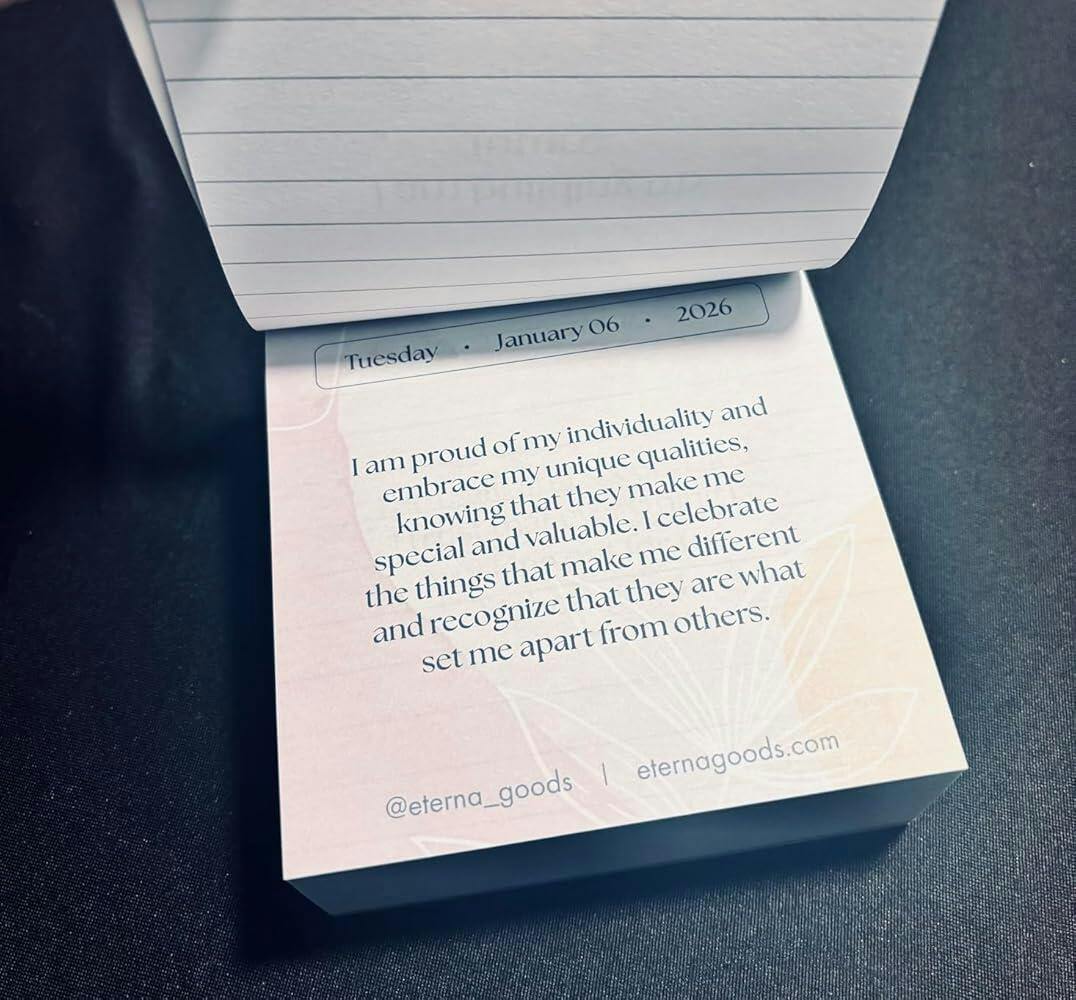 Tuesday • January 06 • 2026
I am proud of my individuality and
embrace my unique qualities,
knowing that they make me
special and valuable. I celebrate
the things that make me different
and recognize that they are what
set me apart from others.
@eterna_goods | eternagoods.com